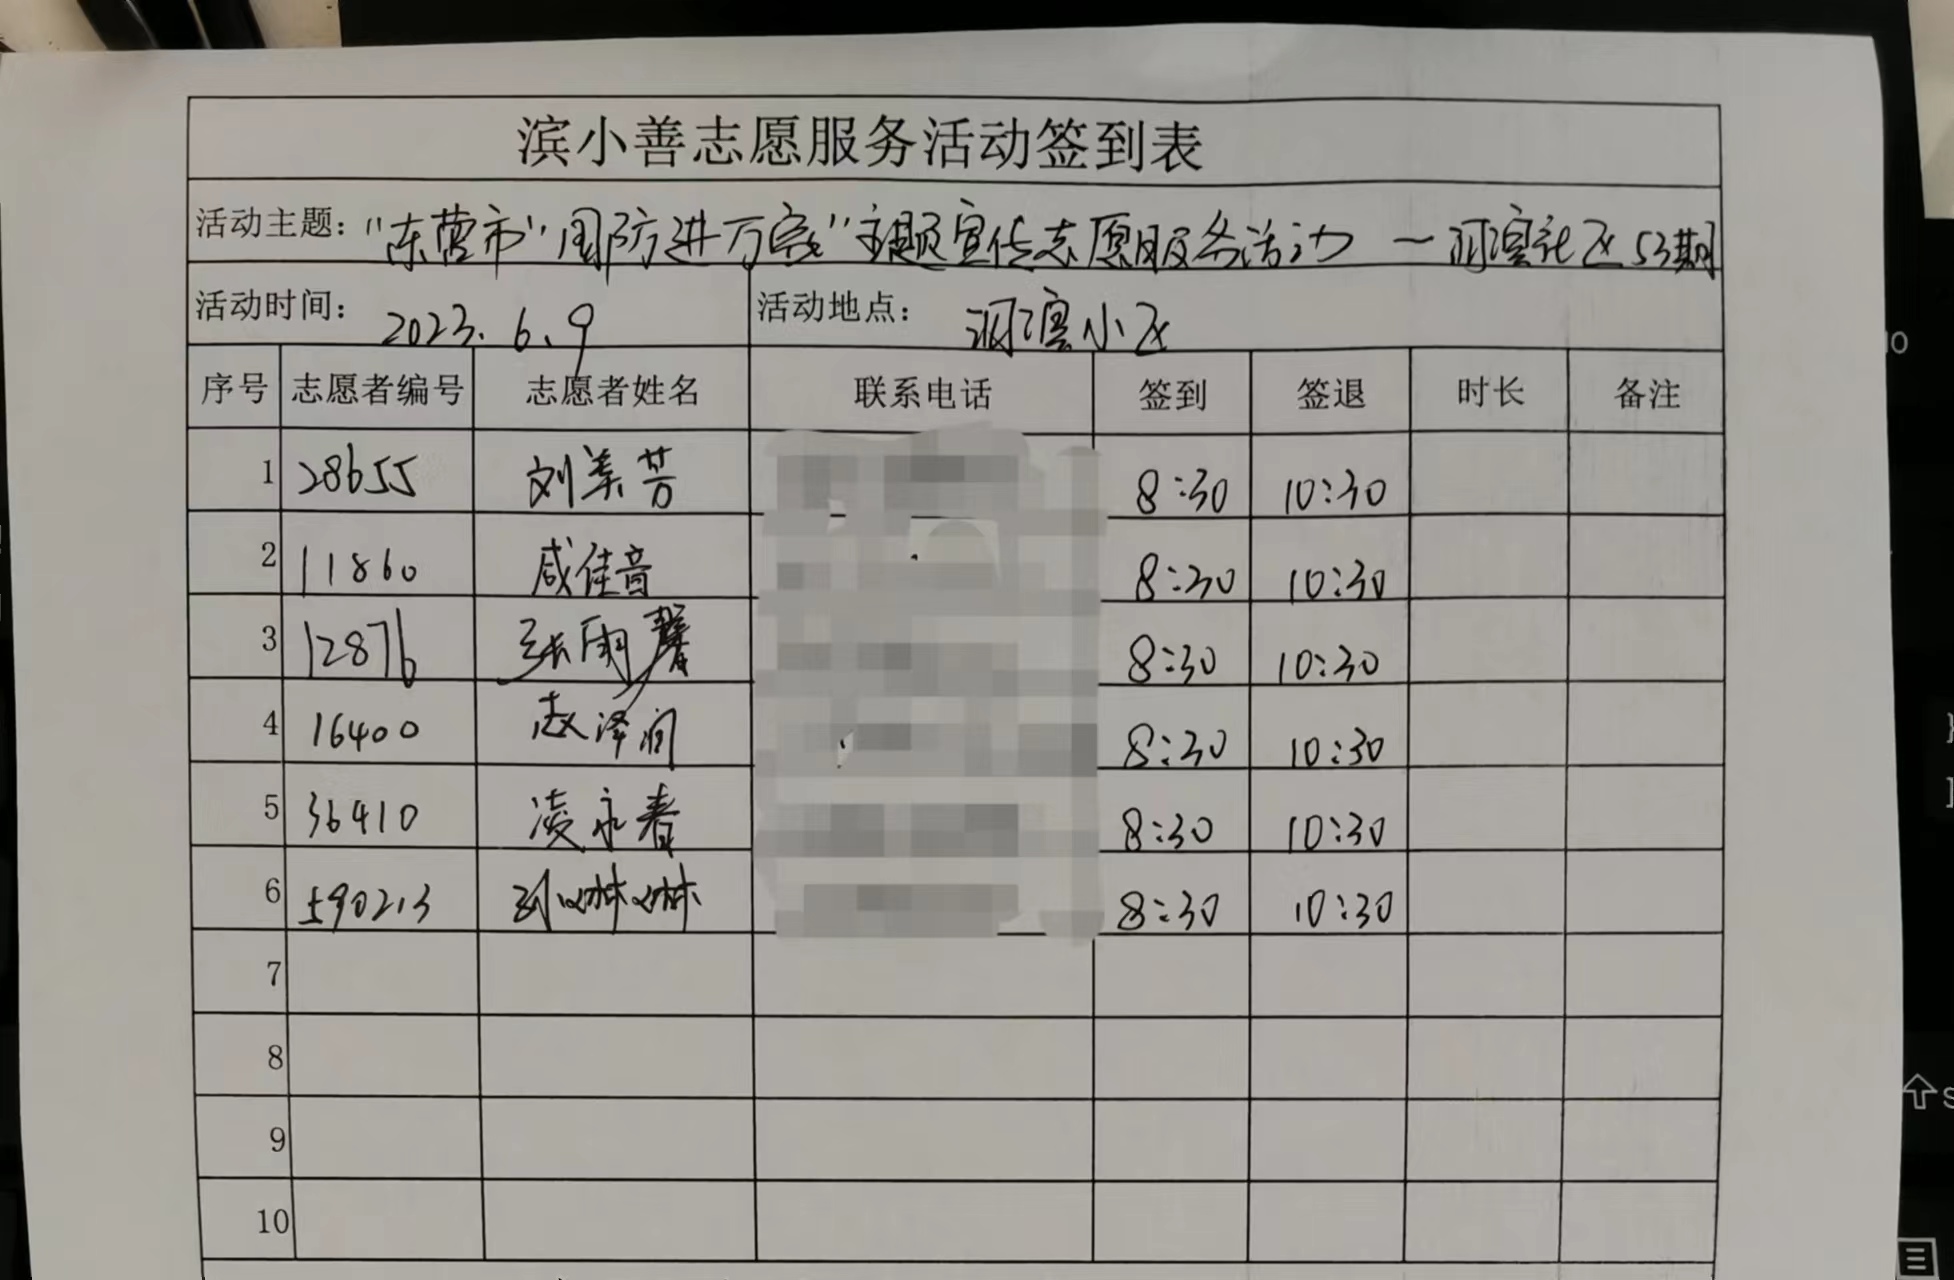 滨小善志愿服务活动签到表
活动主题：“东营市“国防进万家”主题宣传志愿服务活动 — 河滨社区53期
活动时间： 2023.6.9 活动地点： 河滨小区
序号 志愿者编号 志愿者姓名 联系电话 签到 签退 时长 备注
1 28655 刘美芳 8:30 10:30
2 11860 咸佳音 8:30 10:30
3 12876 张雨馨 8:30 10:30
4 16400 赵泽润 8:30 10:30
5 36410 凌永春 8:30 10:30
6 590213 孙淋淋 8:30 10:30
7
8
9
10